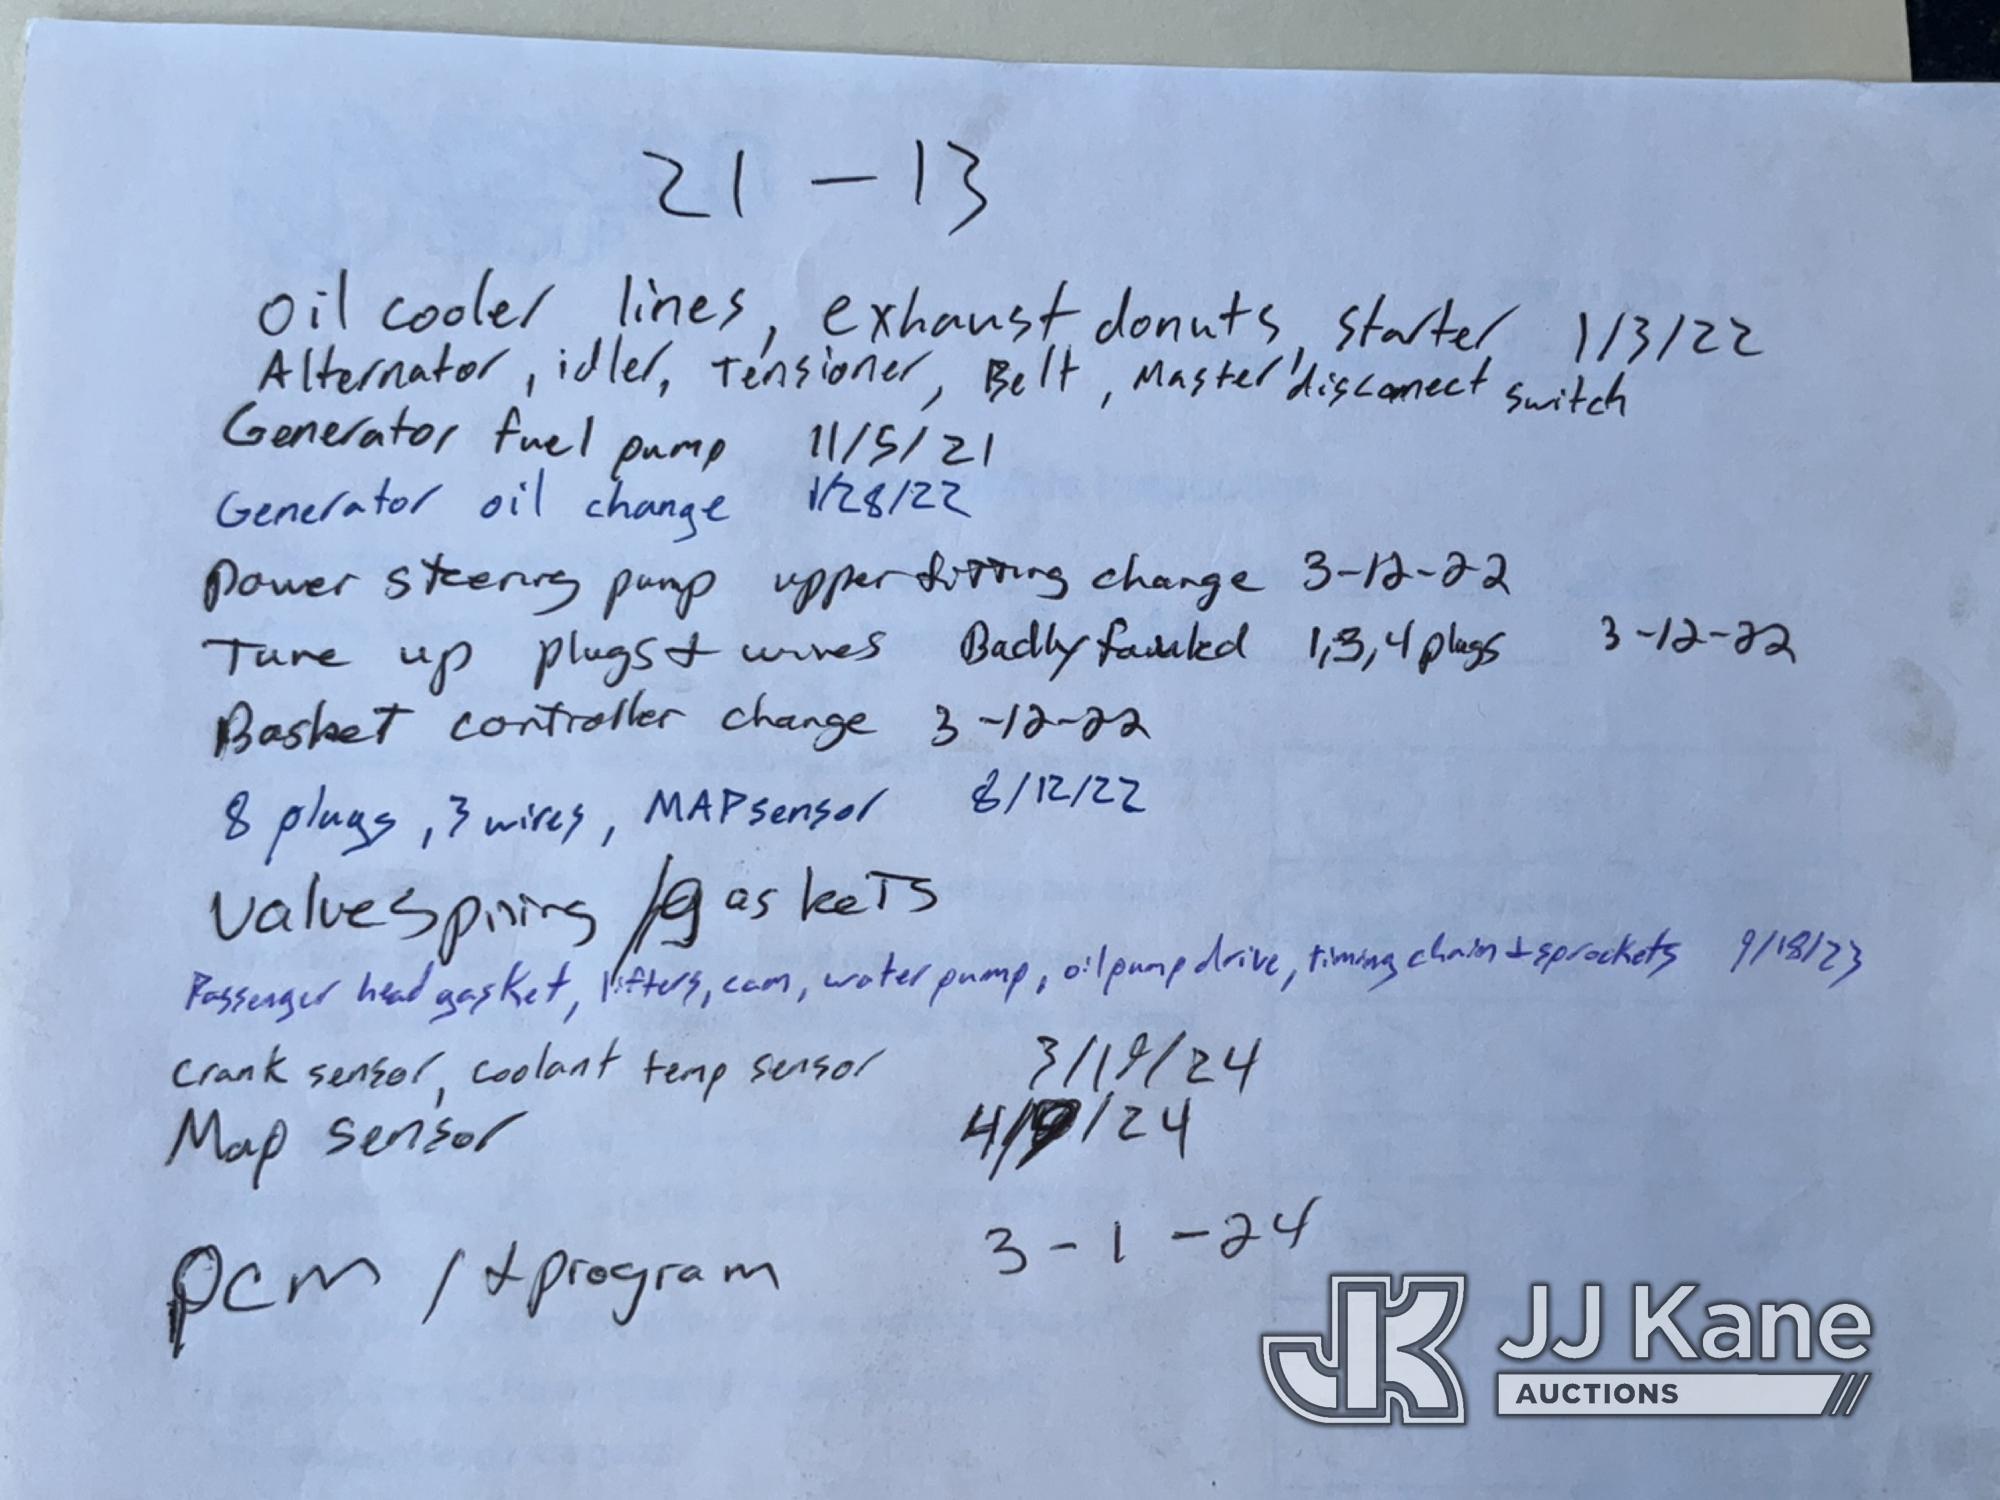 21-13
Oil cooler lines, exhaust donuts, starter 1/3/22
Alternator, idler, Tensioner, Belt, Master disconnect switch
Generator fuel pump 11/5/21
Generator oil change 1/28/22
Power steering pump upper fitting change 3-12-22
Tune up plugs + wires Badly 1,3,4 plugs 3-12-22
Basket controller change 3-12-22
8 plugs, 3 wires, MAP sensor 8/12/22
valvespiring/gaskets
Passenger head gasket, lifters, cam, water pump, oil pump drive, timing chain + sprockets 9/18/23
crank sensor, coolant temp sensor 3/19/24
Map sensor 4/9/24
pcm /+program 3-1-24
JJ Kane
AUCTIONS